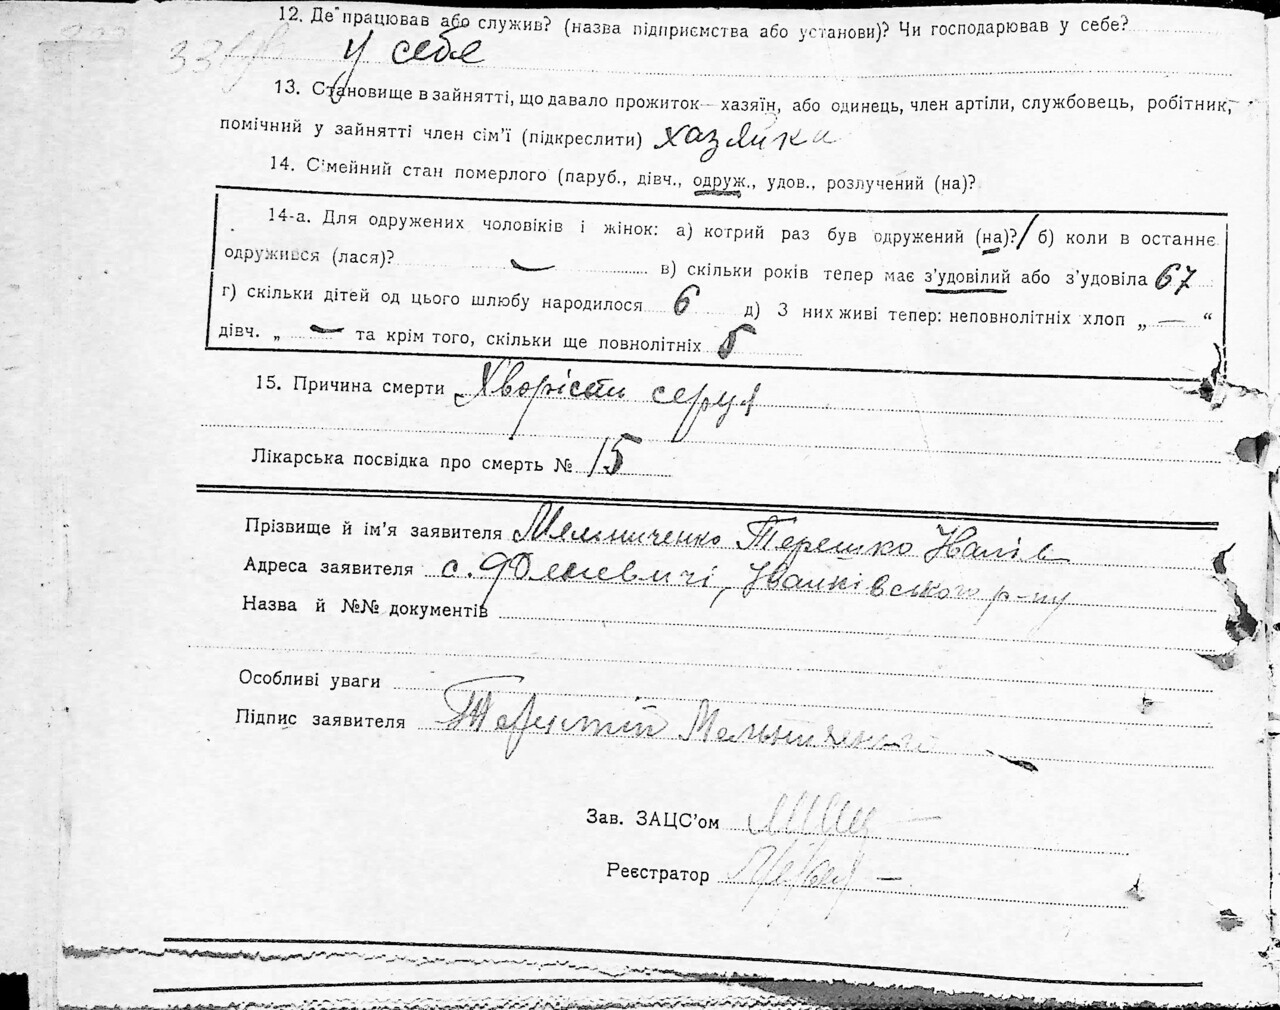 12. Де працював або служив? (назва підприємства або установи)? Чи господарював у себе?
У себе
13. Становище в зайнятті, що давало прожиток — хазяїн, або одинець, член артіли, службовець, робітник,
помічний у зайнятті член сім’ї (підкреслити) хазяйка
14. Сімейний стан померлого (паруб., дівч., одруж., удов., розлучений (на)?
14-а. Для одружених чоловіків і жінок: а) котрий раз був одружений (на)? / б) коли в останнє
одружився (лася)? — в) скільки років тепер має з’удовілий або з’удовіла 67
г) скільки дітей од цього шлюбу народилося 6 д) З них живі тепер: неповнолітніх хлоп „ — “
дівч. „ — та крім того, скільки ще повнолітніх
15. Причина смерти Хворісти серця
Лікарська посвідка про смерть № 15
Прізвище й ім’я заявителя Мельниченко Терешко
Адреса заявителя с. Іванківського р-ну
Назва й №№ документів
Особливі уваги
Підпис заявителя Мельниченко
Зав. ЗАЦС’ом
Реєстратор